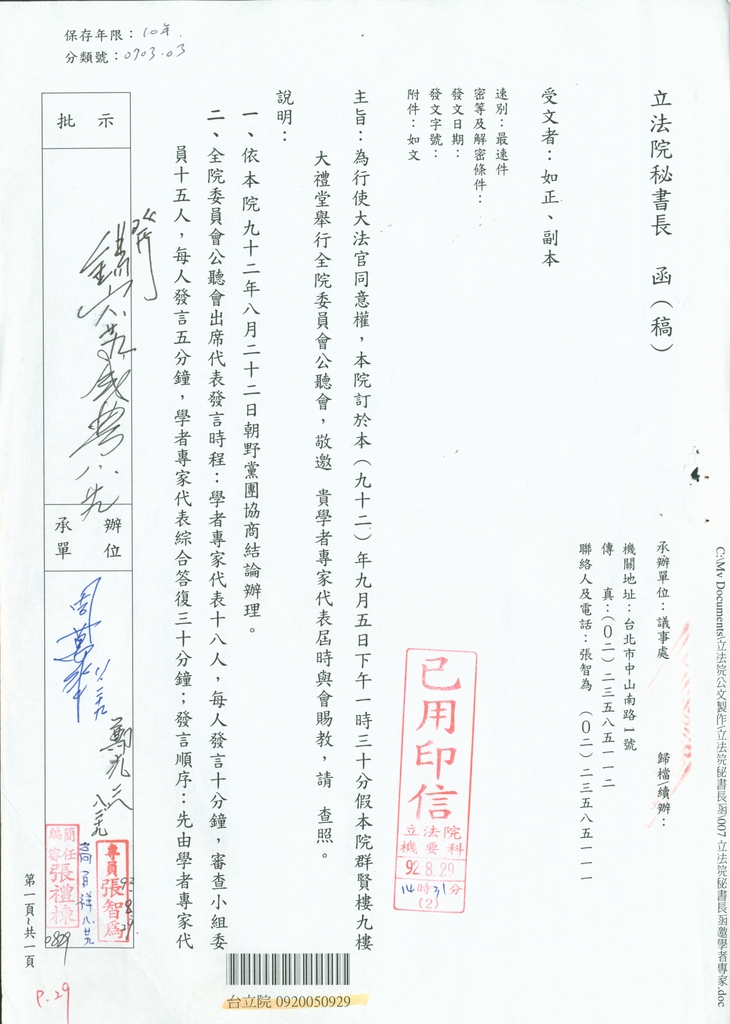 保存年限：10年
分類號：0703.03
C:\My Documents\立法院公文製作\立法院秘書長函\007 立法院秘書長函邀學者專家.doc
立法院秘書長　函（稿）
承辦單位：議事處　歸檔\續辦：
機關地址：台北市中山南路1號
傳　真：(０二）二三五八五一一二
聯絡人及電話：張智為　(０二）二三五八五一一一
受文者：如正、副本
速別：最速件
密等及解密條件：
發文日期：
發文字號：
附件：如文
主旨：為行使大法官同意權，本院訂於本（九十二）年九月五日下午一時三十分假本院群賢樓九樓
大禮堂舉行全院委員會公聽會，敬邀　貴學者專家代表屆時與會賜教，請　查照。
說明：
一、依本院九十二年八月二十二日朝野黨團協商結論辦理。
二、全院委員會公聽會出席代表發言時程：學者專家代表十八人，每人發言十分鐘，審查小組委
員十五人，每人發言五分鐘，學者專家代表綜合答復三十分鐘；發言順序：先由學者專家代
已用印信
立法院
機要科
92.8.29
14時31分
(2)
批示
承辦
單位
專員張智為
簡任編審張禮棟
0829
第一頁～共一頁
P.29
台立院 0920050929